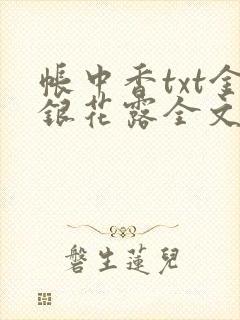 帳中香txt金
銀花露全文
磐生蓮兒